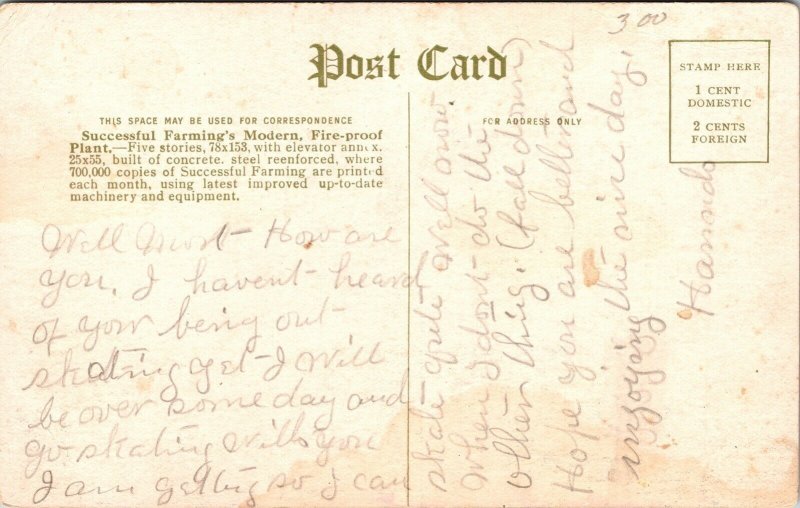 3 00
Post Card
STAMP HERE
1 CENT
DOMESTIC
2 CENTS
FOREIGN
THIS SPACE MAY BE USED FOR CORRESPONDENCE
FOR ADDRESS ONLY
Successful Farming's Modern, Fire-proof
Plant.—Five stories, 78x153, with elevator annex.
25x55, built of concrete. steel reenforced, where
700,000 copies of Successful Farming are printed
each month, using latest improved up-to-date
machinery and equipment.
Well How are
you, I havent heard
of your being out
skating yet I will
be over some day and
go skating with you
I am getting so I can
skate quite well now
when I dont do the
other thing. (fall down)
Hope you are better and
enjoying the nice day.